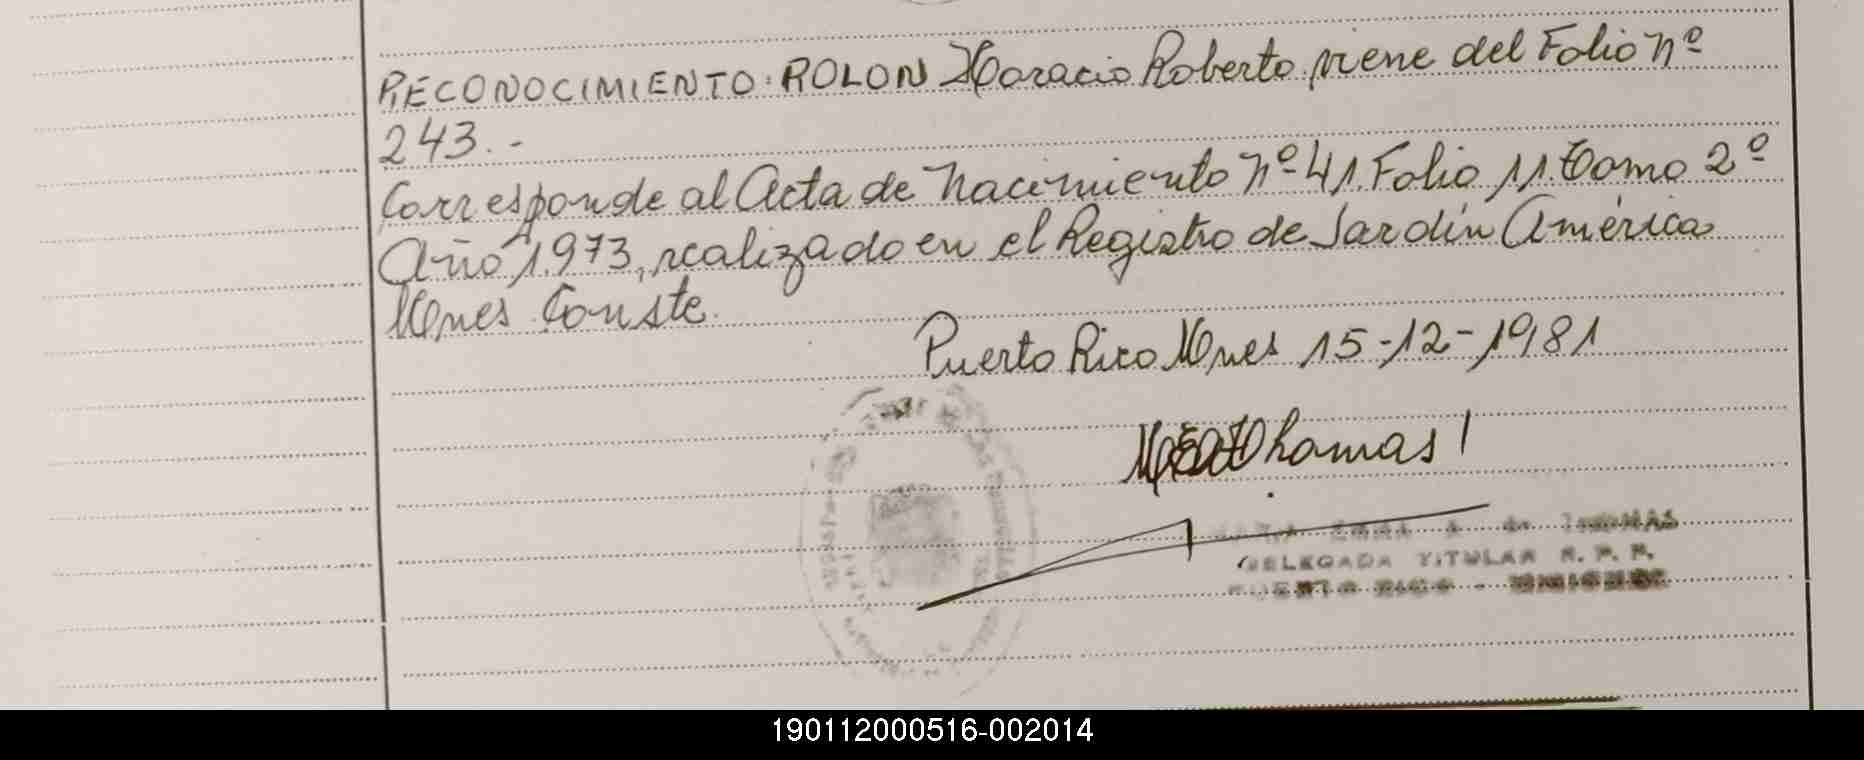 RECONOCIMIENTO: ROLON Horacio Roberto viene del Folio nº
243.-
Corresponde al Acta de nacimiento nº 41 Folio 11 Tomo 2º
Año 1973, realizado en el Registro de Jardín América
Mnes. Conste.
Puerto Rico Mnes 15-12-1981
Thomas
THOMAS
DELEGADA TITULAR R. P. P.
PUERTO RICO - MISIONES
190112000516-002014